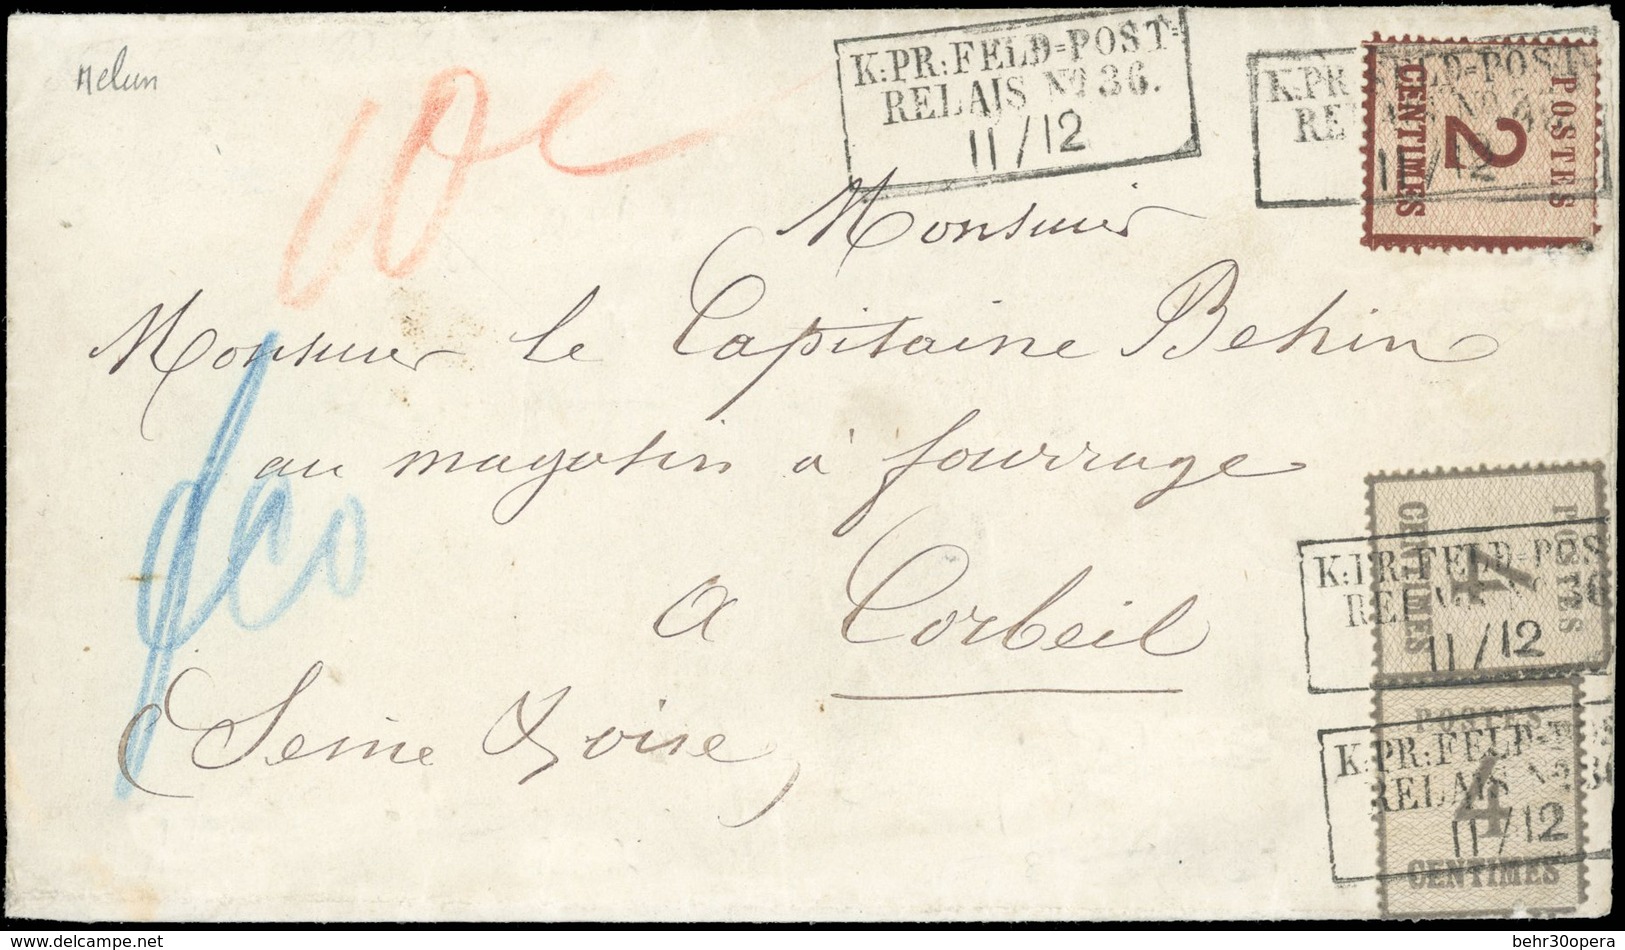 Melun
10 c
K:PR:FELD=POST=
RELAIS No. 36.
11/12
K:PR:FELD=POST=
RELAIS No. 36.
11/12
POSTES
2
CENTIMES
Monsieur
Monsieur le Capitaine Behin
au magasin à fourrage
à Corbeil
(Seine & Oise)
POSTES
4
CENTIMES
K:PR:FELD=POS
RELAIS No 36
11/12
POSTES
4
CENTIMES
K:PR:FELD=P
RELAIS No. 36
11/12
behr30opera